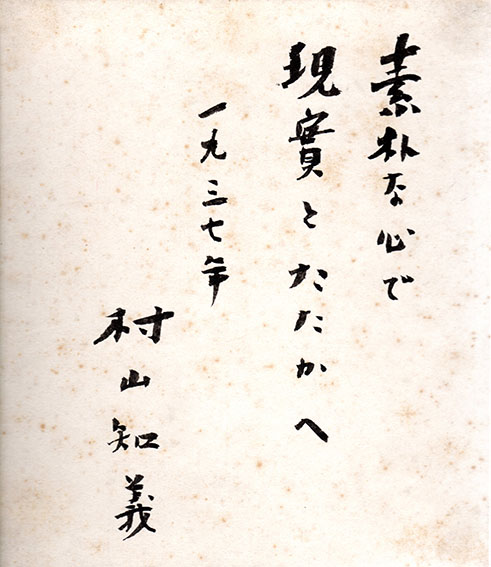 素朴な心で
現實とたたかへ
一九三七年
村山知義